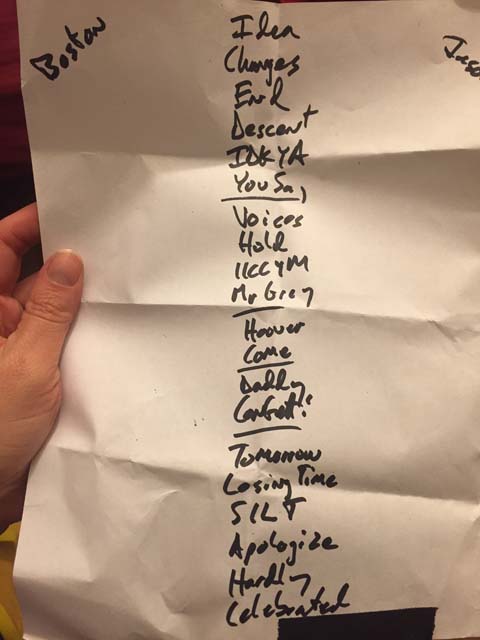 Boston
Idea
Changes
End
Descent
IDKYA
You Say
Voices
Hold
IICCYM
Mr Grey
Hoover
Come
Daddy
Confetti
Tomorrow
Losing Time
SILT
Apologize
Hardly
Celebrated